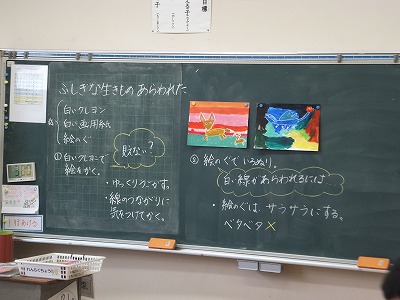 目標
ふしぎな生きもの あらわれた
白いクレヨン
白い画用紙
絵のぐ
①白いクレヨンで
絵をかく。
見えない?
・ゆっくりうごかす。
・線のつながりに
気をつけてかく。
②絵のぐでいろぬり。
白い線があらわれるには
・絵のぐは、サラサラにする。
ベタベタ×
れんらくちょう